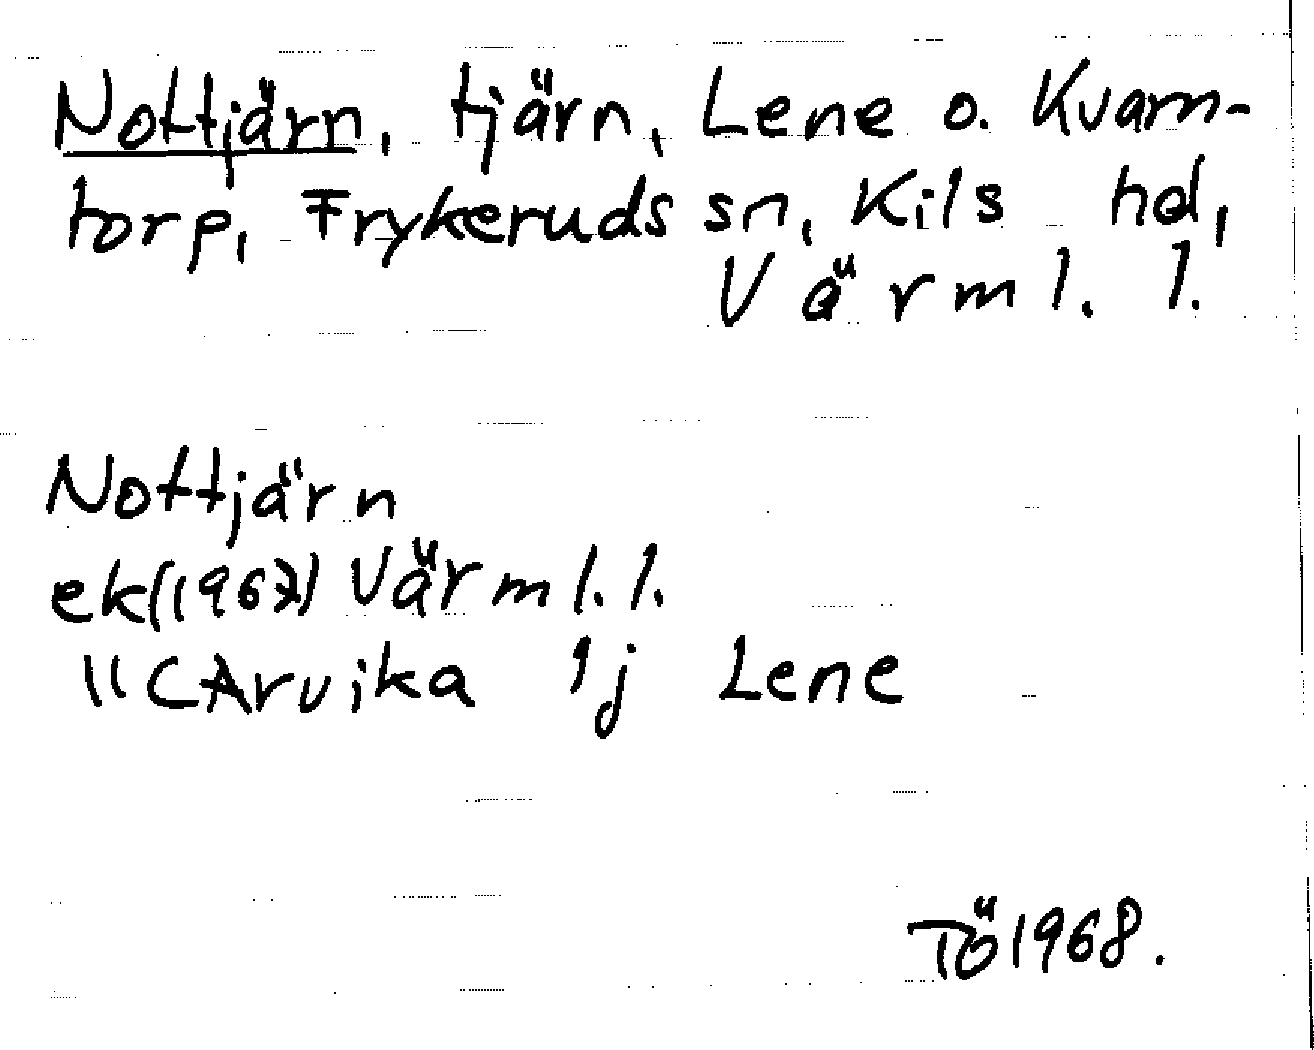 Nottjärn, tjärn, Lene o. Kvarn-
torp, Frykeruds sn, Kils hd,
Värml. l.
Nottjärn
ek(1967) Värml. l.
11CArvika 1j Lene
TÖ 1968.